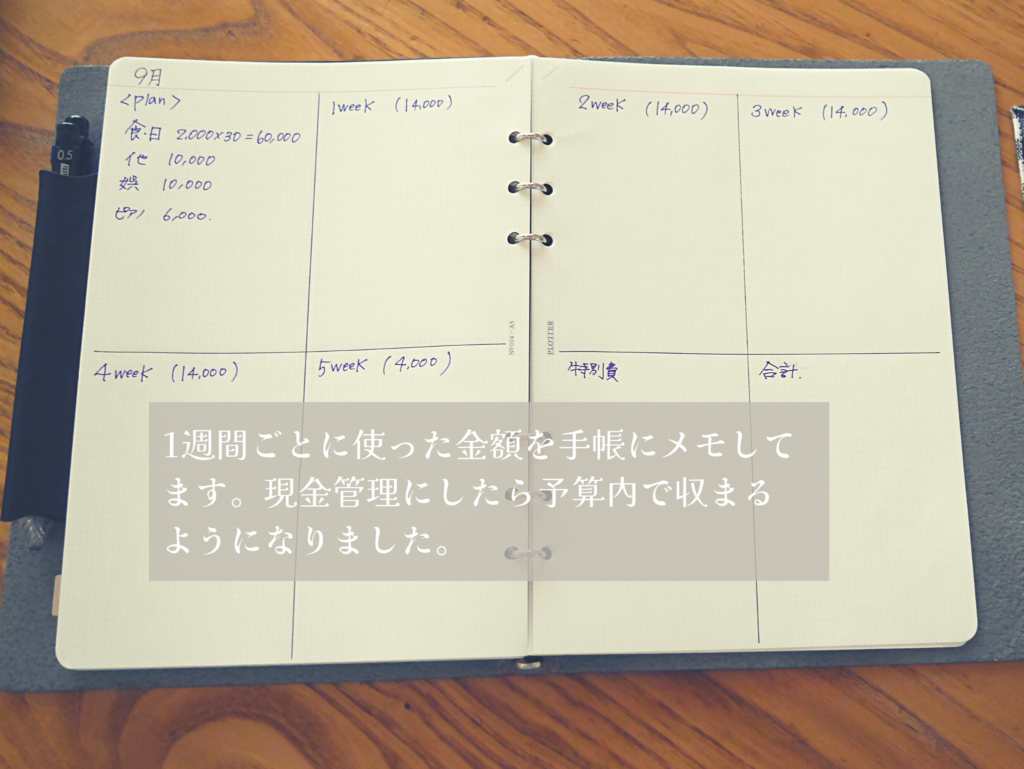 9月
<plan>
食・日 2,000×30=60,000
他 10,000
娯 10,000
ピアノ 6,000.
1week (14,000)
2week (14,000)
3week (14,000)
4week (14,000)
5week (4,000)
特別費
合計.
1週間ごとに使った金額を手帳にメモして
ます。現金管理にしたら予算内で収まる
ようになりました。
0.5
PLOTTER